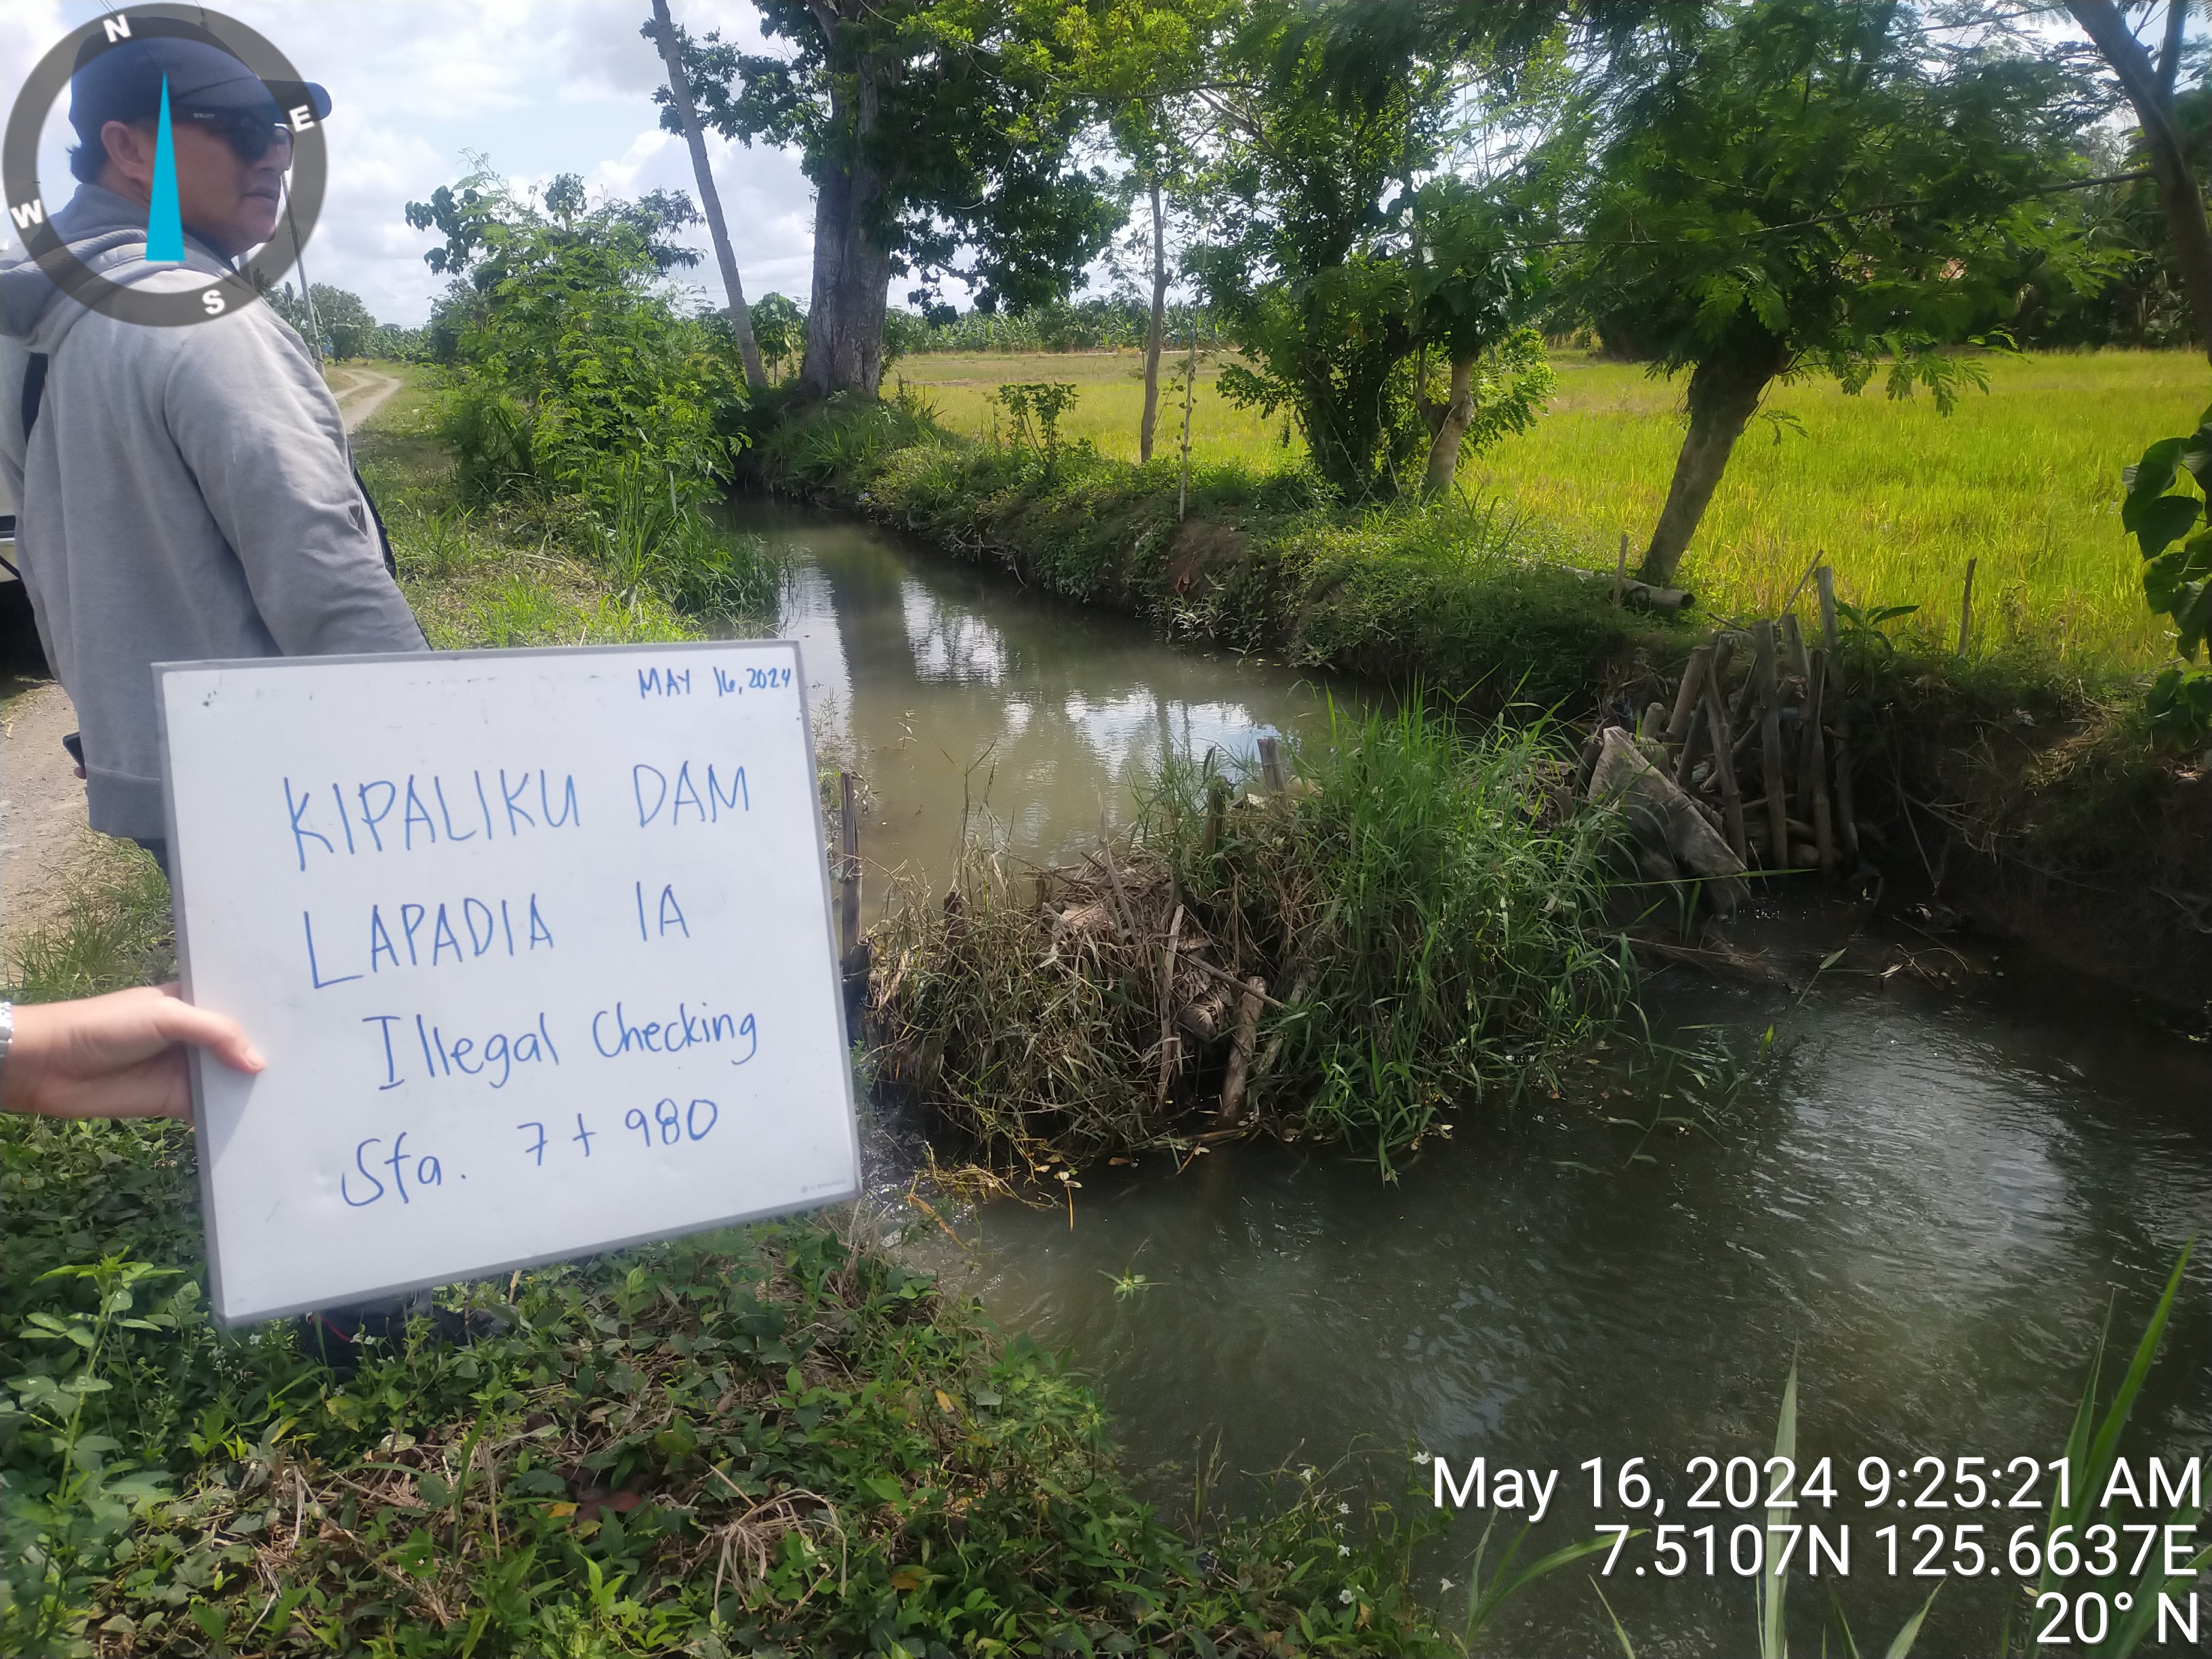 N
E
W
S
MAY 16, 2024
KIPALIKU DAM
LAPADIA IA
Illegal Checking
Sta. 7+980
May 16, 2024 9:25:21 AM
7.5107N 125.6637E
20° N